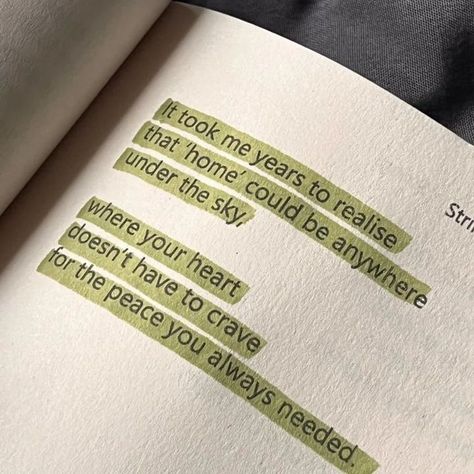 It took me years to realise
that 'home' could be anywhere
under the sky,
where your heart
doesn't have to crave
for the peace you always needed.